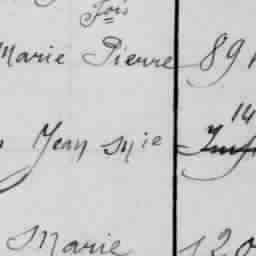 Jois
Marie Pierre 891
14
Jean Mie
Marie 120